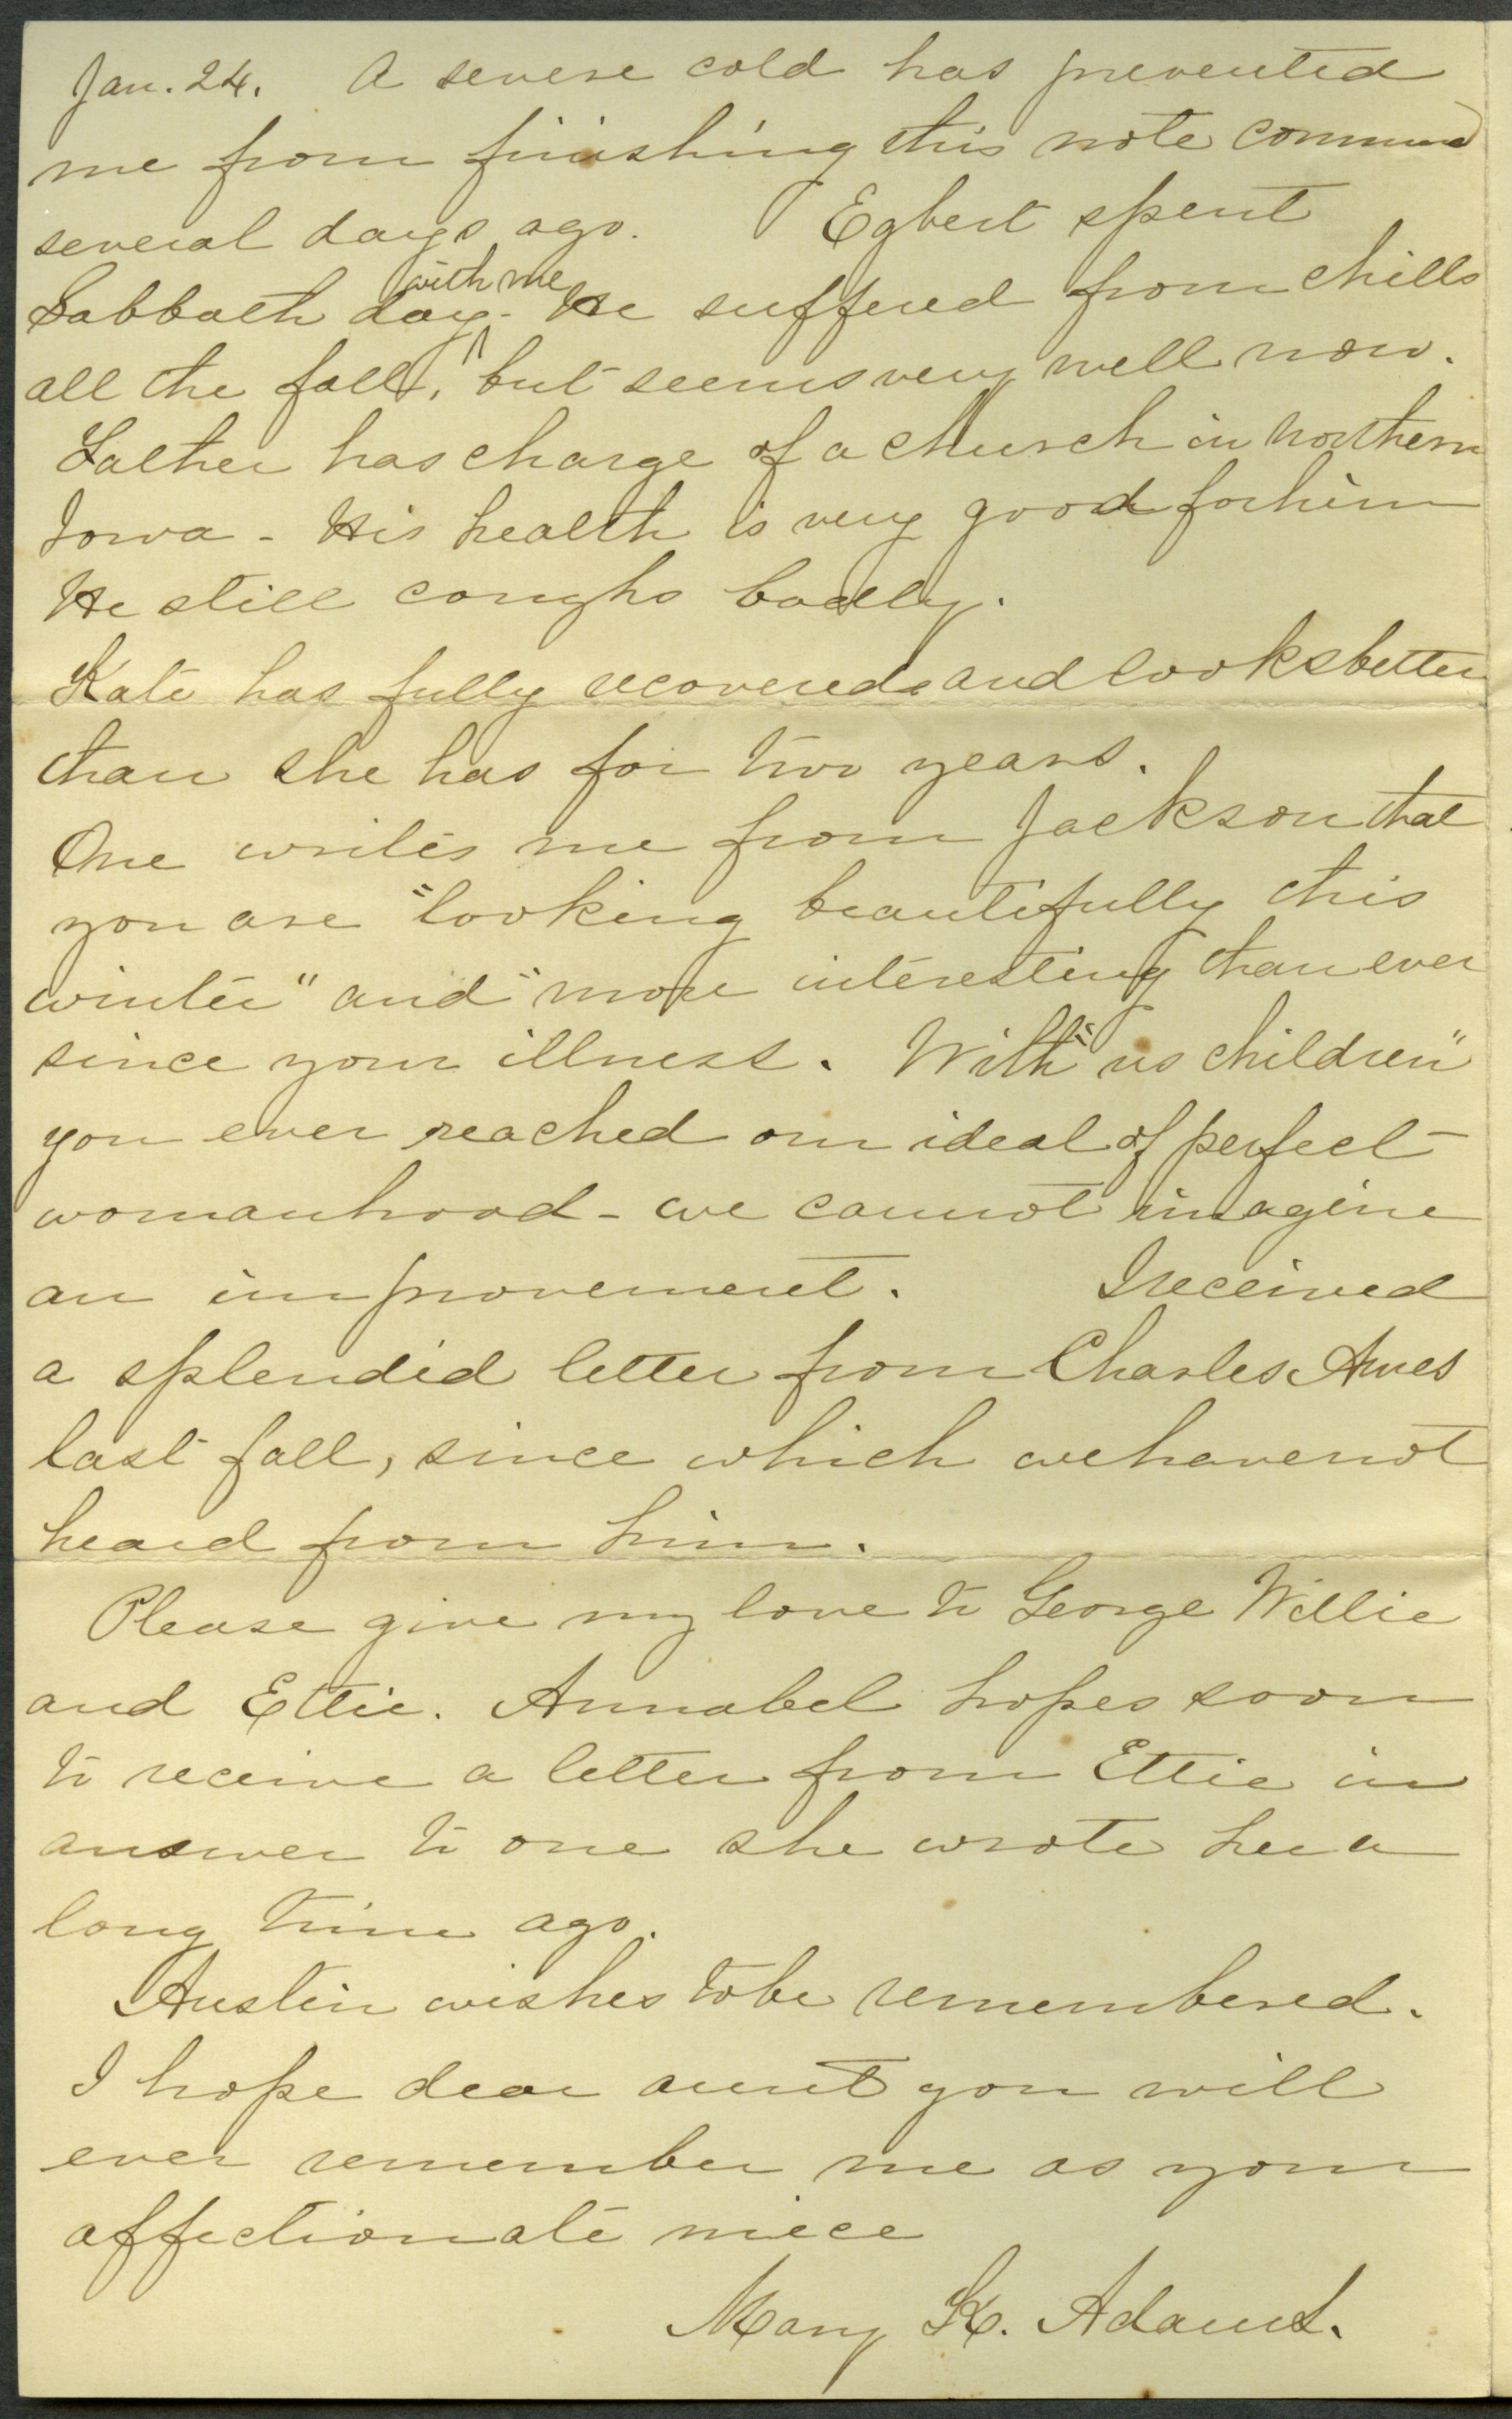 Jan. 24. A severe cold has prevented
me from finishing this note
several days ago. Egbert spent
Sabbath day with me - He suffered from chills
all the fall, but seems very well now.
Father has charge of a church in Northern
Iowa - His health is very good for him
He still coughs badly.
Kate has fully recovered and looks better
than she has for two years.
One writes me from Jackson that
you are "looking beautifully this
winter" and "more interesting than ever
since your illness. With "us children"
you ever reached our ideal of perfect
womanhood - we cannot imagine
an improvement. I received
a splendid letter from Charles Ames
last fall, since which we have not
heard from him.
Please give my love to George Willie
and Ettie. Annabel hopes soon
to receive a letter from Ettie in
answer to one she wrote her a
long time ago.
Austin wishes to be remembered.
I hope dear aunt you will
ever remember me as your
affectionate niece
Mary K. Adams.